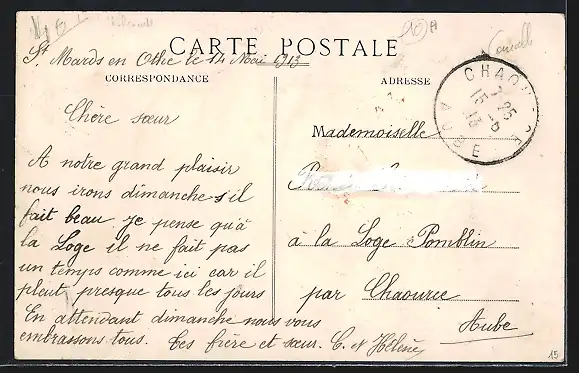 CARTE POSTALE
St Mards en Othe le 14 Mai 1913
CORRESPONDANCE
ADRESSE
Chère sœur
A notre grand plaisir
nous irons dimanche s'il
fait beau je pense qu'à
la Loge il ne fait pas
un temps comme ici car il
pleut presque tous les jours
En attendant dimanche nous vous
embrassons tous. Tes frère et sœur. C. et Hélène
Mademoiselle
à la Loge Pomblin
par Chaource
Aube
AUBE
15